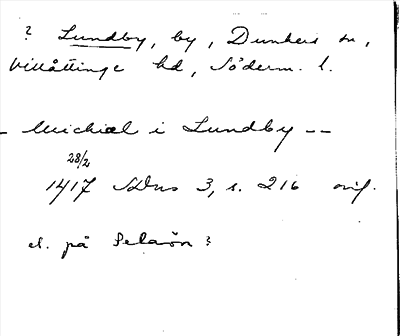 ? Lundby, by, Dunkers sn,
Villåttinge hd, Söderm. l.
- Michiæl i Lundby --
28/2
1417 SDns 3, s. 216 orig.
el. på Selaön ?